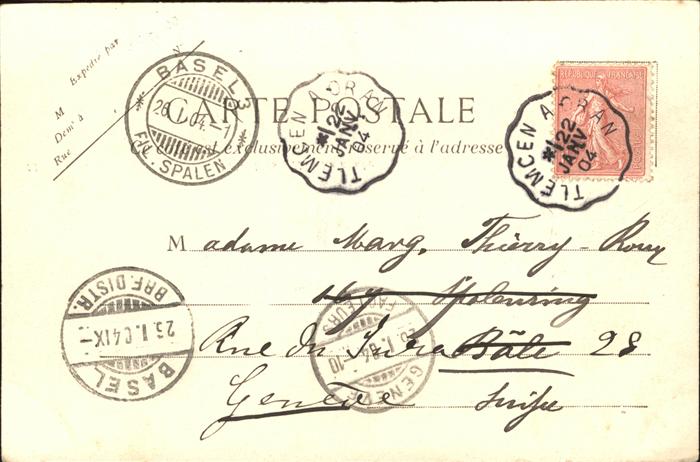 Expédié par
M
Dem t à
Rue
N
BASEL 3
26. I. 04.-1
FIL. SPALEN
CARTE POSTALE
Ce côté est exclusivement réservé à l'adresse
TLEMCEN A ORAN
*1 22
JANV
04
REPUBLIQUE FRANÇAISE
TLEMCEN A ORAN
*1 22
JANV
04
Madame Marg. Thierry-Roux
Spalenring
Rue du Jura Bâle 28
Genève Suisse
BASEL
BRF. DISTR.
25. I. 04. IX-
GENEVE
FACTEURS